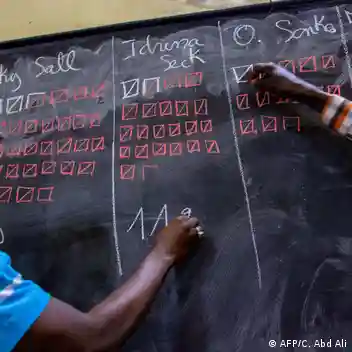 ky Sall
Idrissa
Seck
O. Sonko
119
© AFP/C. Abd Ali